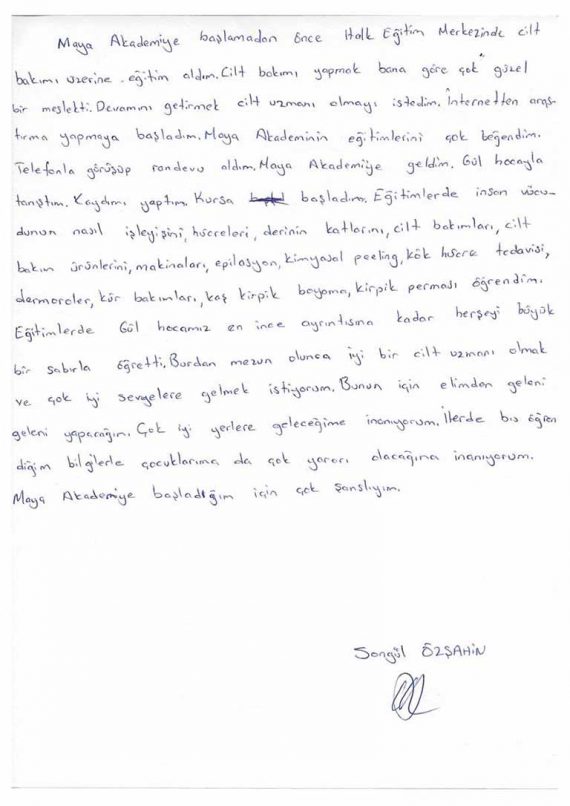 Maya Akademiye başlamadan önce Halk Eğitim Merkezinde cilt
bakımı üzerine eğitim aldım. Cilt bakımı yapmak bana göre çok güzel
bir meslekti. Devamını getirmek cilt uzmanı olmayı istedim. İnternetten araş-
tırma yapmaya başladım. Maya Akademinin eğitimlerini çok beğendim.
Telefonla görüşüp randevu aldım. Maya Akademiye geldim. Gül hocayla
tanıştım. Kaydımı yaptım. Kursa başladım. Eğitimlerde insan vücu-
dunun nasıl işleyişini, hücreleri, derinin katlarını, cilt bakımları, cilt
bakım ürünlerini, makinaları, epilasyon, kimyasal peeling, kök hücre tedavisi,
dermaroler, kür bakımları, kaş kirpik boyama, kirpik perması öğrendim.
Eğitimlerde Gül hocamız en ince ayrıntısına kadar herşeyi büyük
bir sabırla öğretti. Burdan mezun olunca iyi bir cilt uzmanı olmak
ve çok iyi seviyelere gelmek istiyorum. Bunun için elimden geleni
geleni yapacağım. Çok iyi yerlere geleceğime inanıyorum. İlerde bu öğren
diğim bilgilerle çocuklarıma da çok yararı olacağına inanıyorum.
Maya Akademiye başladığım için çok şanslıyım.
Songül ÖZŞAHİN